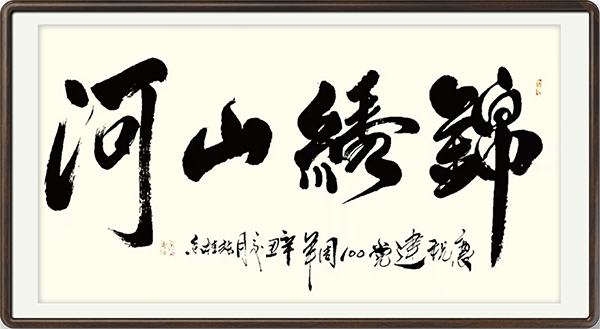 錦綉山河
慶祝建党100周年辛丑